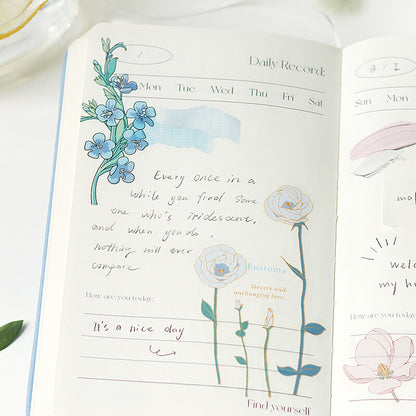 Daily Record:
1
Mon Tue Wed Thu Fri Sat
Every once in a
while you find some
one who's iridescent,
and when you do,
nothing will ever
compare
Eustoma
Sincere and
unchanging love.
How are you today:
It's a nice day
Find yourself
3/1
Sun Mon
welc
my h
How are you today: